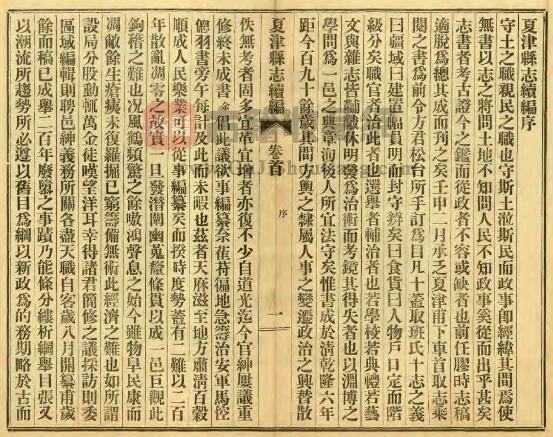 夏津縣志續編序
守土之職親民之職也守斯土涖斯民而政事卽經緯其間爲使
無書以志之將問土地不知問人民不知政事奚從而出乎甚矣
志書者考古證今之鑑而從政者不容或缺者也前任膠時志稿
適脫爲總其成而刊之矣壬申二月承乏夏津甫下車首取志乘
閱之書爲前令方君松台所手訂爲目凡十蓋取班氏十志之義
曰疆域曰建置幅員明而封守辨矣曰食貨曰人物戶口定而階
級分矣職官者治此者也選舉者輔治者也若學校若典禮若藝
文與雜志皆黼黻休明發爲治術而考鏡其得失者也以淵博之
學問爲一邑之典章洵後人所宜法守矣惟書成於淸乾隆六年
距今百九十餘歲其間方輿之隸屬人事之變遷政治之興替散
夏津縣志續編
卷首
序
一
佚無考者固多宜革宜增者亦復不少自道光迄今官紳屢議重
修終未成書金倡此議欲事編纂奈萑苻徧地急籌治安軍馬倥
傯羽書旁午每計及此而未暇也茲者天庥滋至地方肅淸百穀
順成人民樂業可以從事編纂矣而揆時度勢蓋有二難以二百
年散亂凋零之故實一旦發潛闡幽蒐釐條貫以成一邑巨觀此
鈎稽之難也况風鶴頻驚之餘嗷鴻聲息之始今雖物阜民康而
凋敝餘生瘡痍未復羅掘已窮籌備無術此經濟之難也如所謂
設局分股動輒萬金徒嘆望洋耳幸得諸君簡修之議採訪則委
區域編輯則聘邑紳義務所關各盡天職自客歲八月開纂甫歲
餘而稿已成舉二百年廢墜之事蹟乃能條分縷析綱舉目張又
以潮流所趨勢所必遵以舊目爲綱以新政爲的務期略於古而